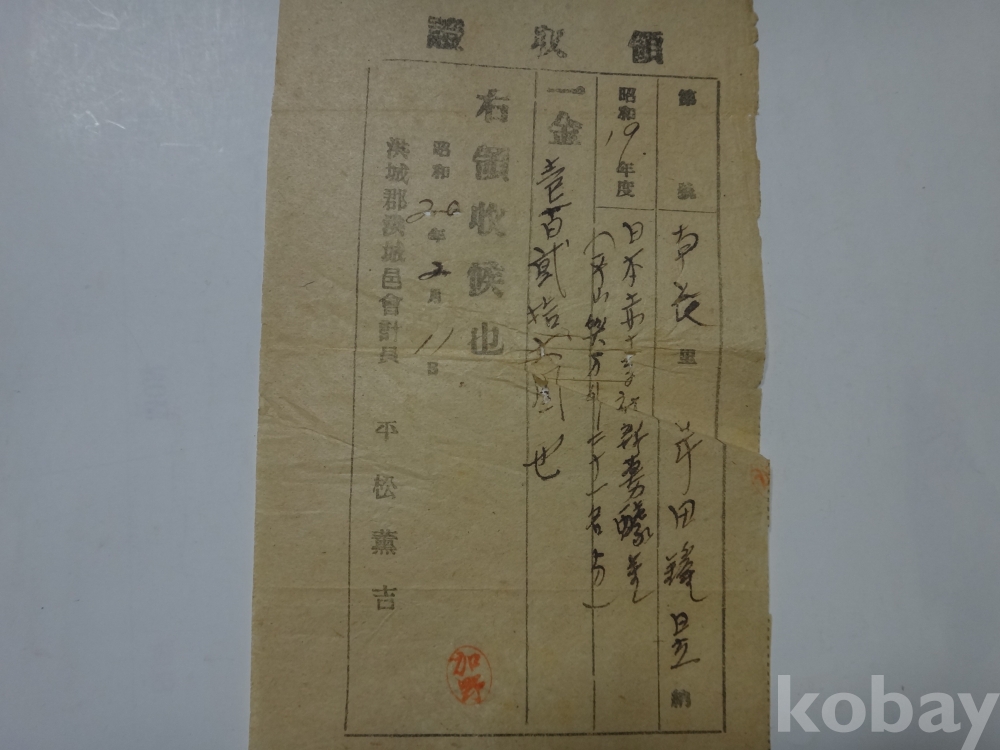 領收證
第 號
南長里 岸田鐘昱 納
昭和19年度
日本赤十字社 醵金
二十一名方)
一金 壹百貳拾六圓也
右領收候也
昭和20年2月11日
洪城郡洪城邑會計員 平松薰吉
加野
kobay